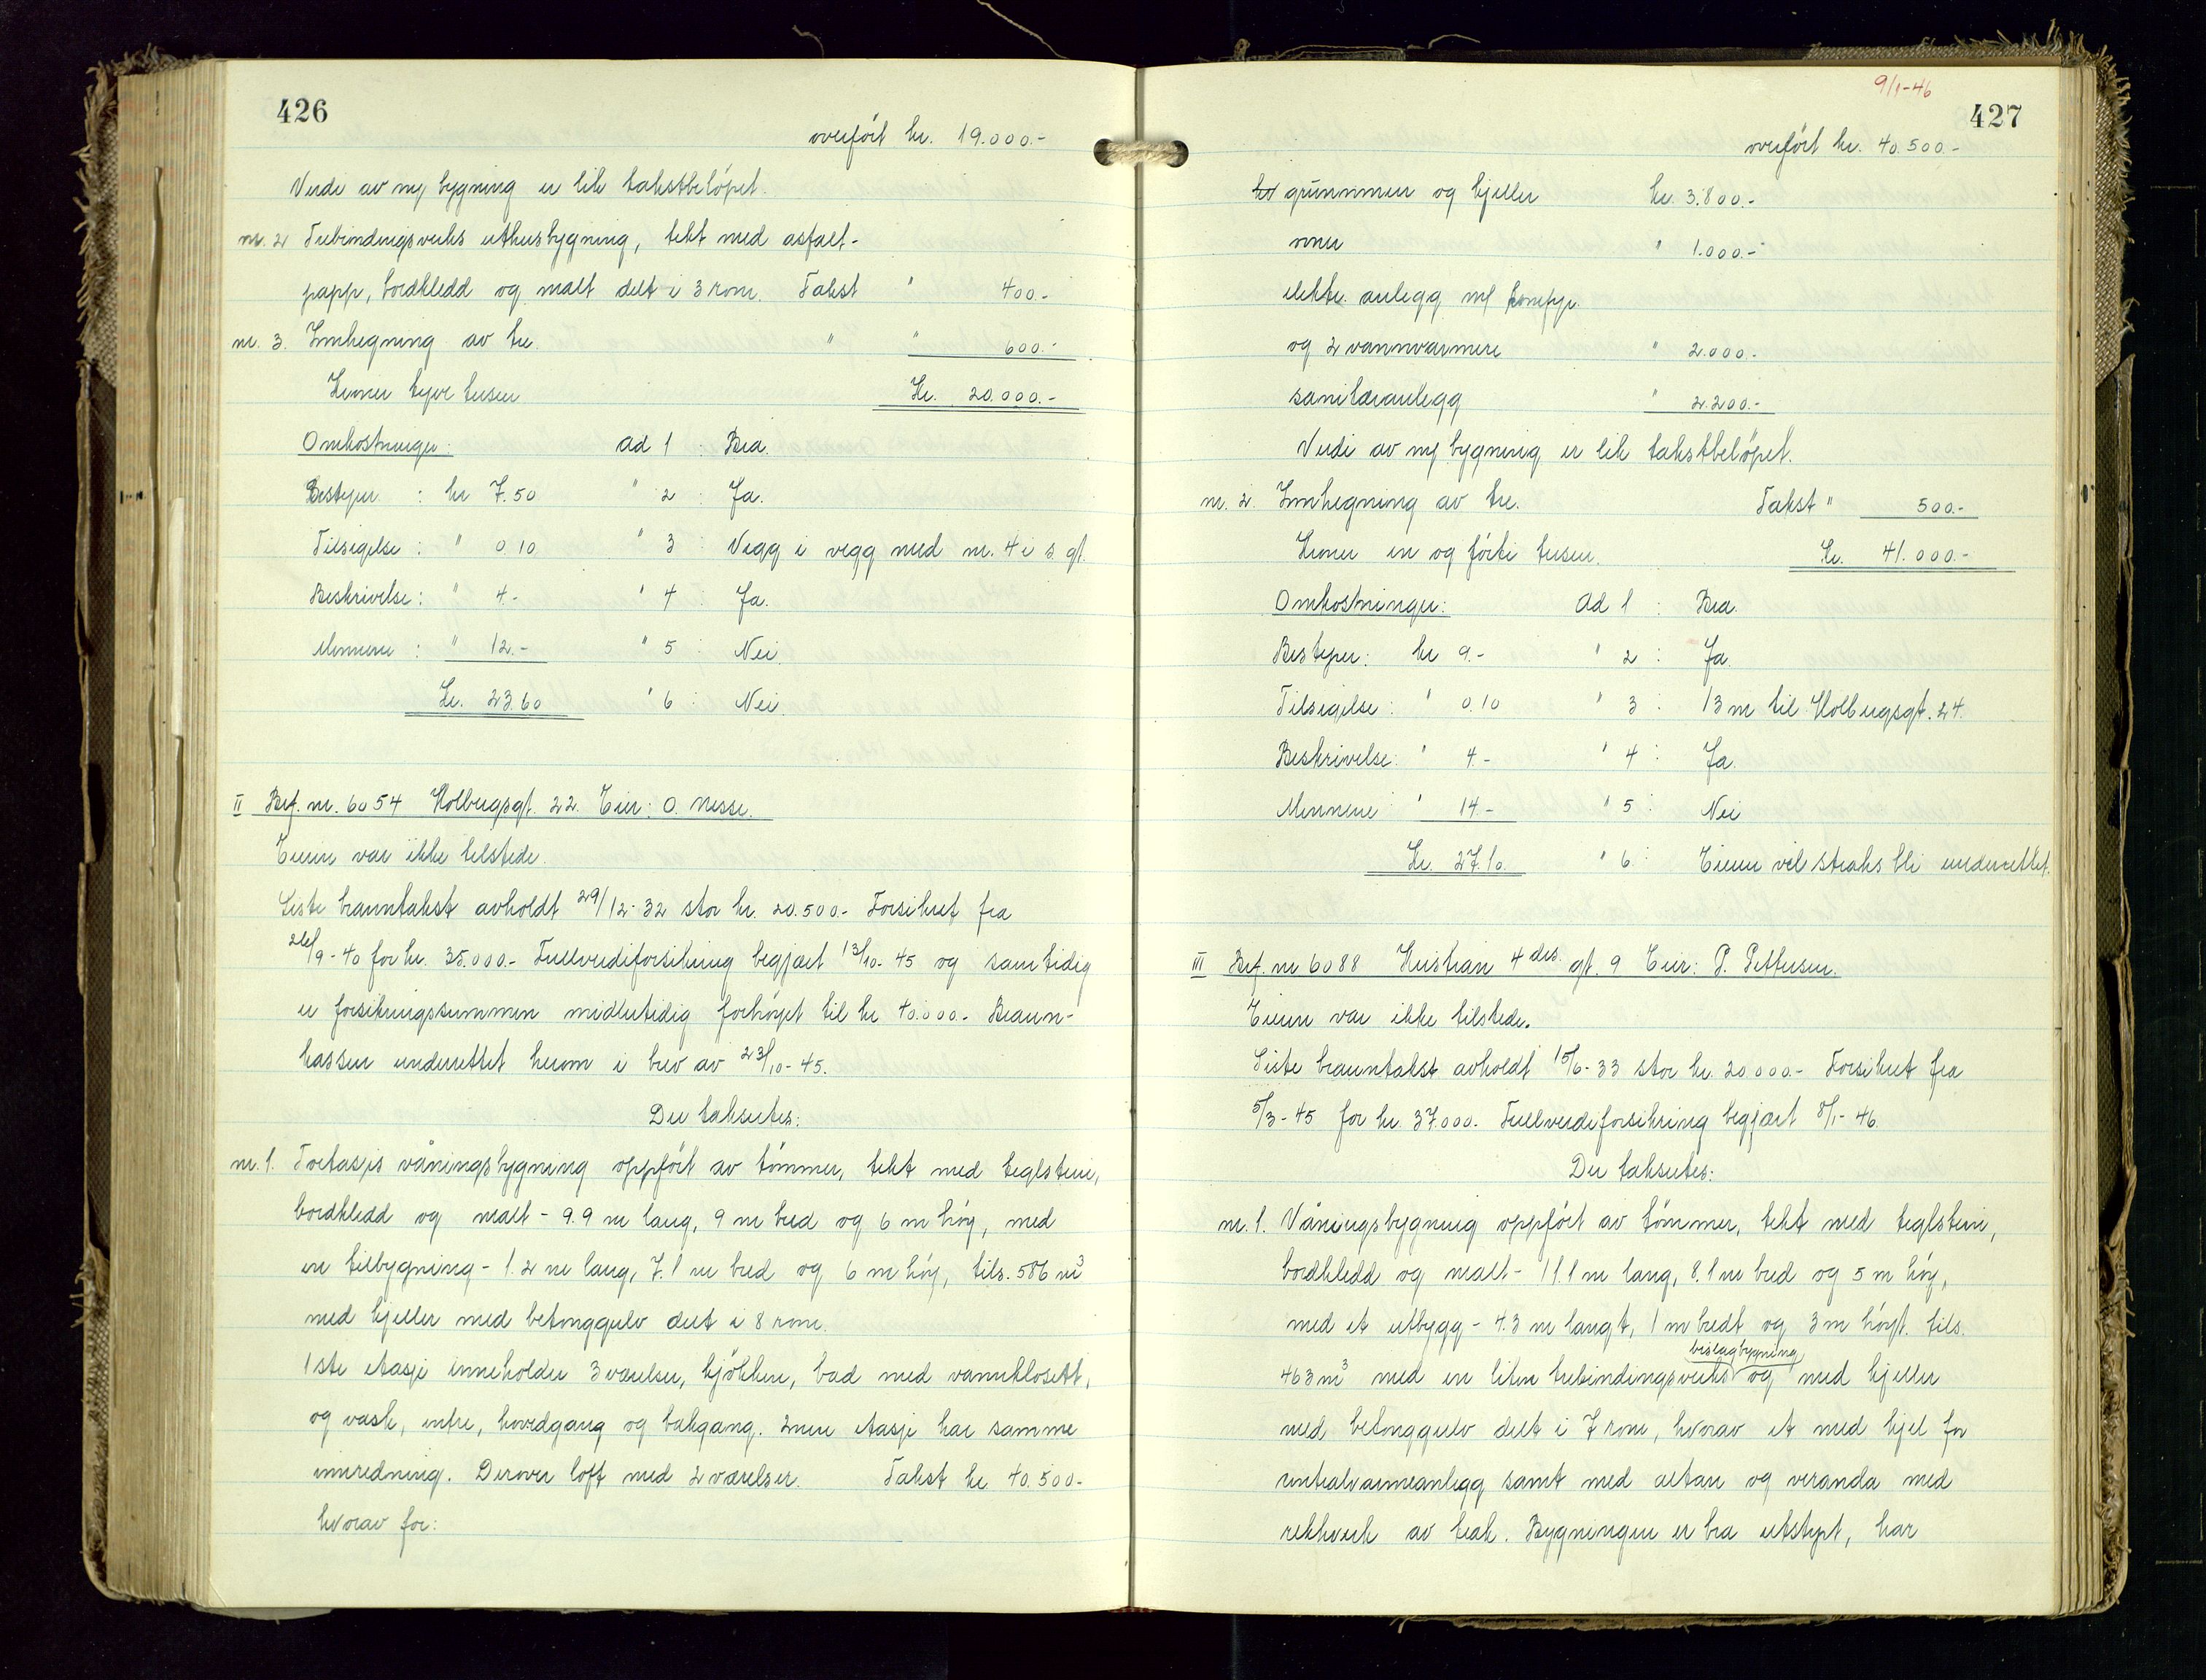 426
overført kr. 19.000.-
Verdi av ny bygning er lik takstbeløpet.
nr. 2 Trebindingsverks uthusbygning, tekt med asfalt-
papp, bordkledd og malt delt i 3 rom. Takst " 400.-
nr. 3. Innhegning av tre. " " 600.-
Kroner tyve tusen Kr. 20.000.-
Omkostninger: ad 1 : Bra.
Bestyrer : kr 7.50 " 2 : Ja.
Tilsigelse : " 0.10 " 3 : Vegg i vegg med nr. 4 i s. gt.
Beskrivelse : " 4.- " 4 : Ja.
Mennene : " 12.- " 5 : Nei.
Kr. 23.60 " 6 : Nei.
II Brf. nr. 6054 Holbergsgt. 22. Eier: O. Nesse.
Eieren var ikke tilstede.
Siste branntakst avholdt 29/12-32 stor kr. 20.500.- Forsikret fra
26/9-40 for kr. 35.000.- Fullverdiforsikring begjært 13/10-45 og samtidig
er forsikringssummen midlertidig forhøyet til kr 40.000.- Brann-
kassen underrettet herom i brev av 23/10-45.
Der takseres:
nr. 1. Toetasjes våningsbygning oppført av tømmer, tekt med teglstein,
bordkledd og malt - 9.9 m lang, 9 m bred og 6 m høy, med
en tilbygning - 1.2 m lang, 7.1 m bred og 6 m høy, tils. 586 m³
med kjeller med betonggulv delt i 8 rom.
1ste etasje inneholder 3 værelser, kjøkken, bad med vannklosett,
og vask, entre, hovedgang og bakgang. 2nen etasje har samme
innredning. Derover loft med 2 værelser. Takst kr 40.500-
hvorav for:
9/1-46
427
overført kr. 40.500.-
grunnmur og kjeller kr. 3.800.-
ovner " 1.000.-
elektr. anlegg m/ komfyr
og 2 vannvarmere " 2.000.-
sanitæranlegg " 2.200.-
Verdi av ny bygning er lik takstbeløpet.
nr. 2. Innhegning av tre. Takst " 500.-
Kroner en og førti tusen. Kr. 41.000.-
Omkostninger: ad 1 : Bra.
Bestyrer: kr 9.- " 2 : Ja.
Tilsigelse : " 0.10 " 3 : 13 m til Holbergsgt. 24.
Beskrivelse: " 4.- " 4 : Ja.
Mennene " 14.- " 5 : Nei
Kr. 27.10. " 6 : Eieren vil straks bli underrettet.
III Brf. nr 6088 Kristian 4 des. gt. 9 Eier: P. Pettersen.
Eieren var ikke tilstede.
Siste branntakst avholdt 15/6-33 stor kr. 20.000.- Forsikret fra
5/3-45 for kr. 37.000. Fullverdiforsikring begjært 8/1-46.
Der takseres:
nr. 1. Våningsbygning oppført av tømmer, tekt med teglstein,
bordkledd og malt - 11.1 m lang, 8.1 m bred og 5 m høy,
med et utbygg - 4.3 m langt, 1 m bredt og 3 m høyt. tils.
bislagbygning
463 m³ med en liten trebindingsverks og med kjeller
med betonggulv delt i 7 rom, hvorav et med kjel for
sentralvarmeanlegg samt med altan og veranda med
rekkverk av teak. Bygningen er bra utstyrt, har